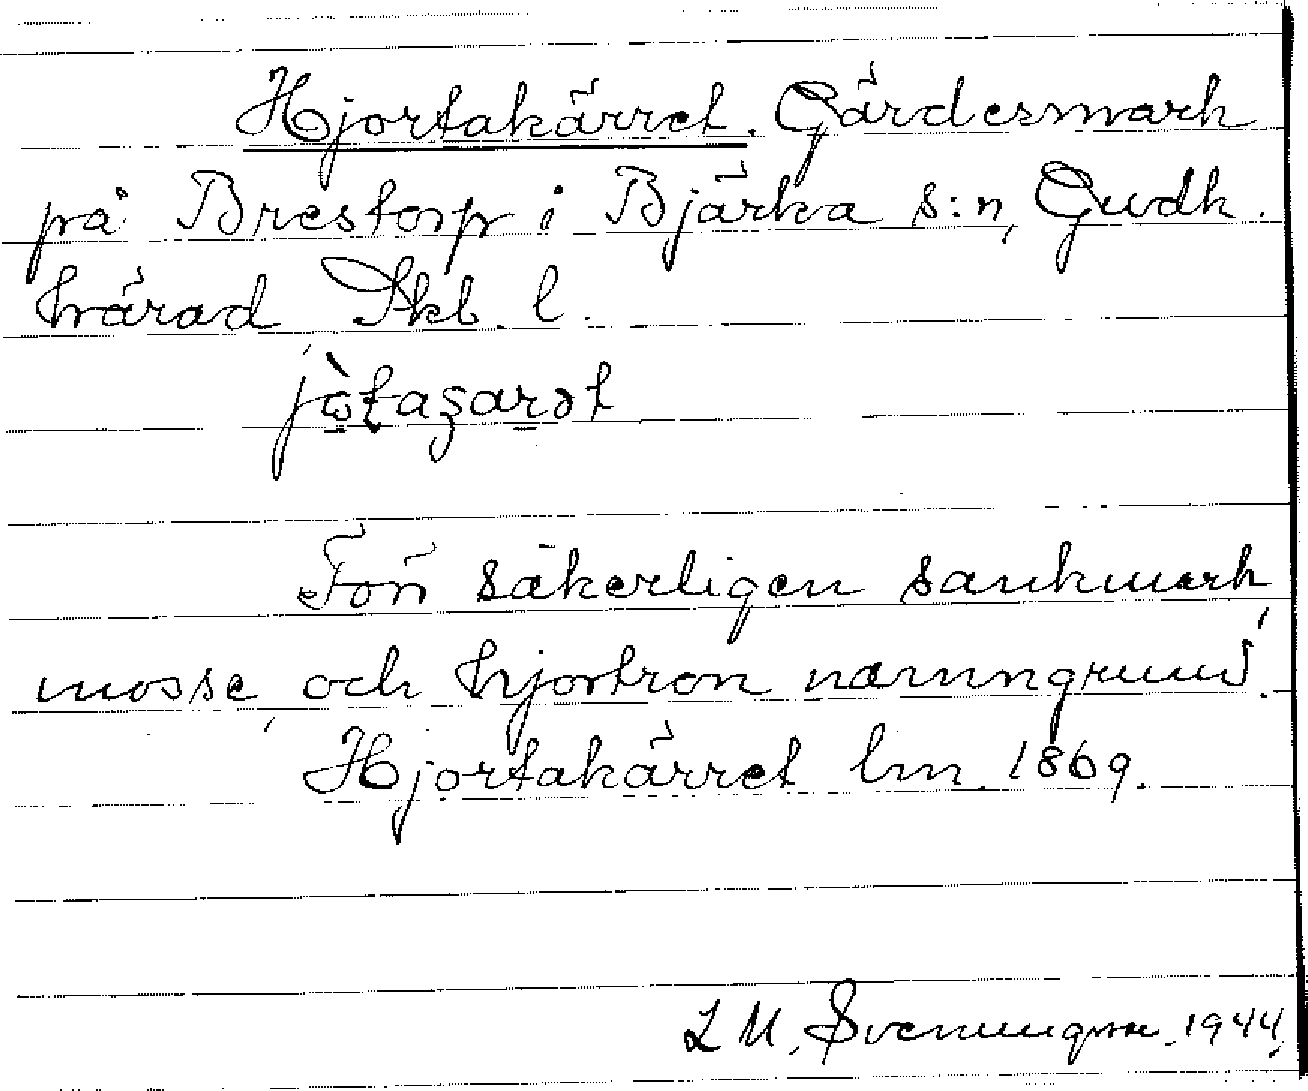 Hjortakärret. Gärdesmark
på Brestorp i Bjärka s:n, Gudh.
härad Skb. l.
Förr säkerligen sankmark,
mosse, och hjortron namngrund.
Hjortakärret lm. 1869.
L M. Svenungsson. 1944.